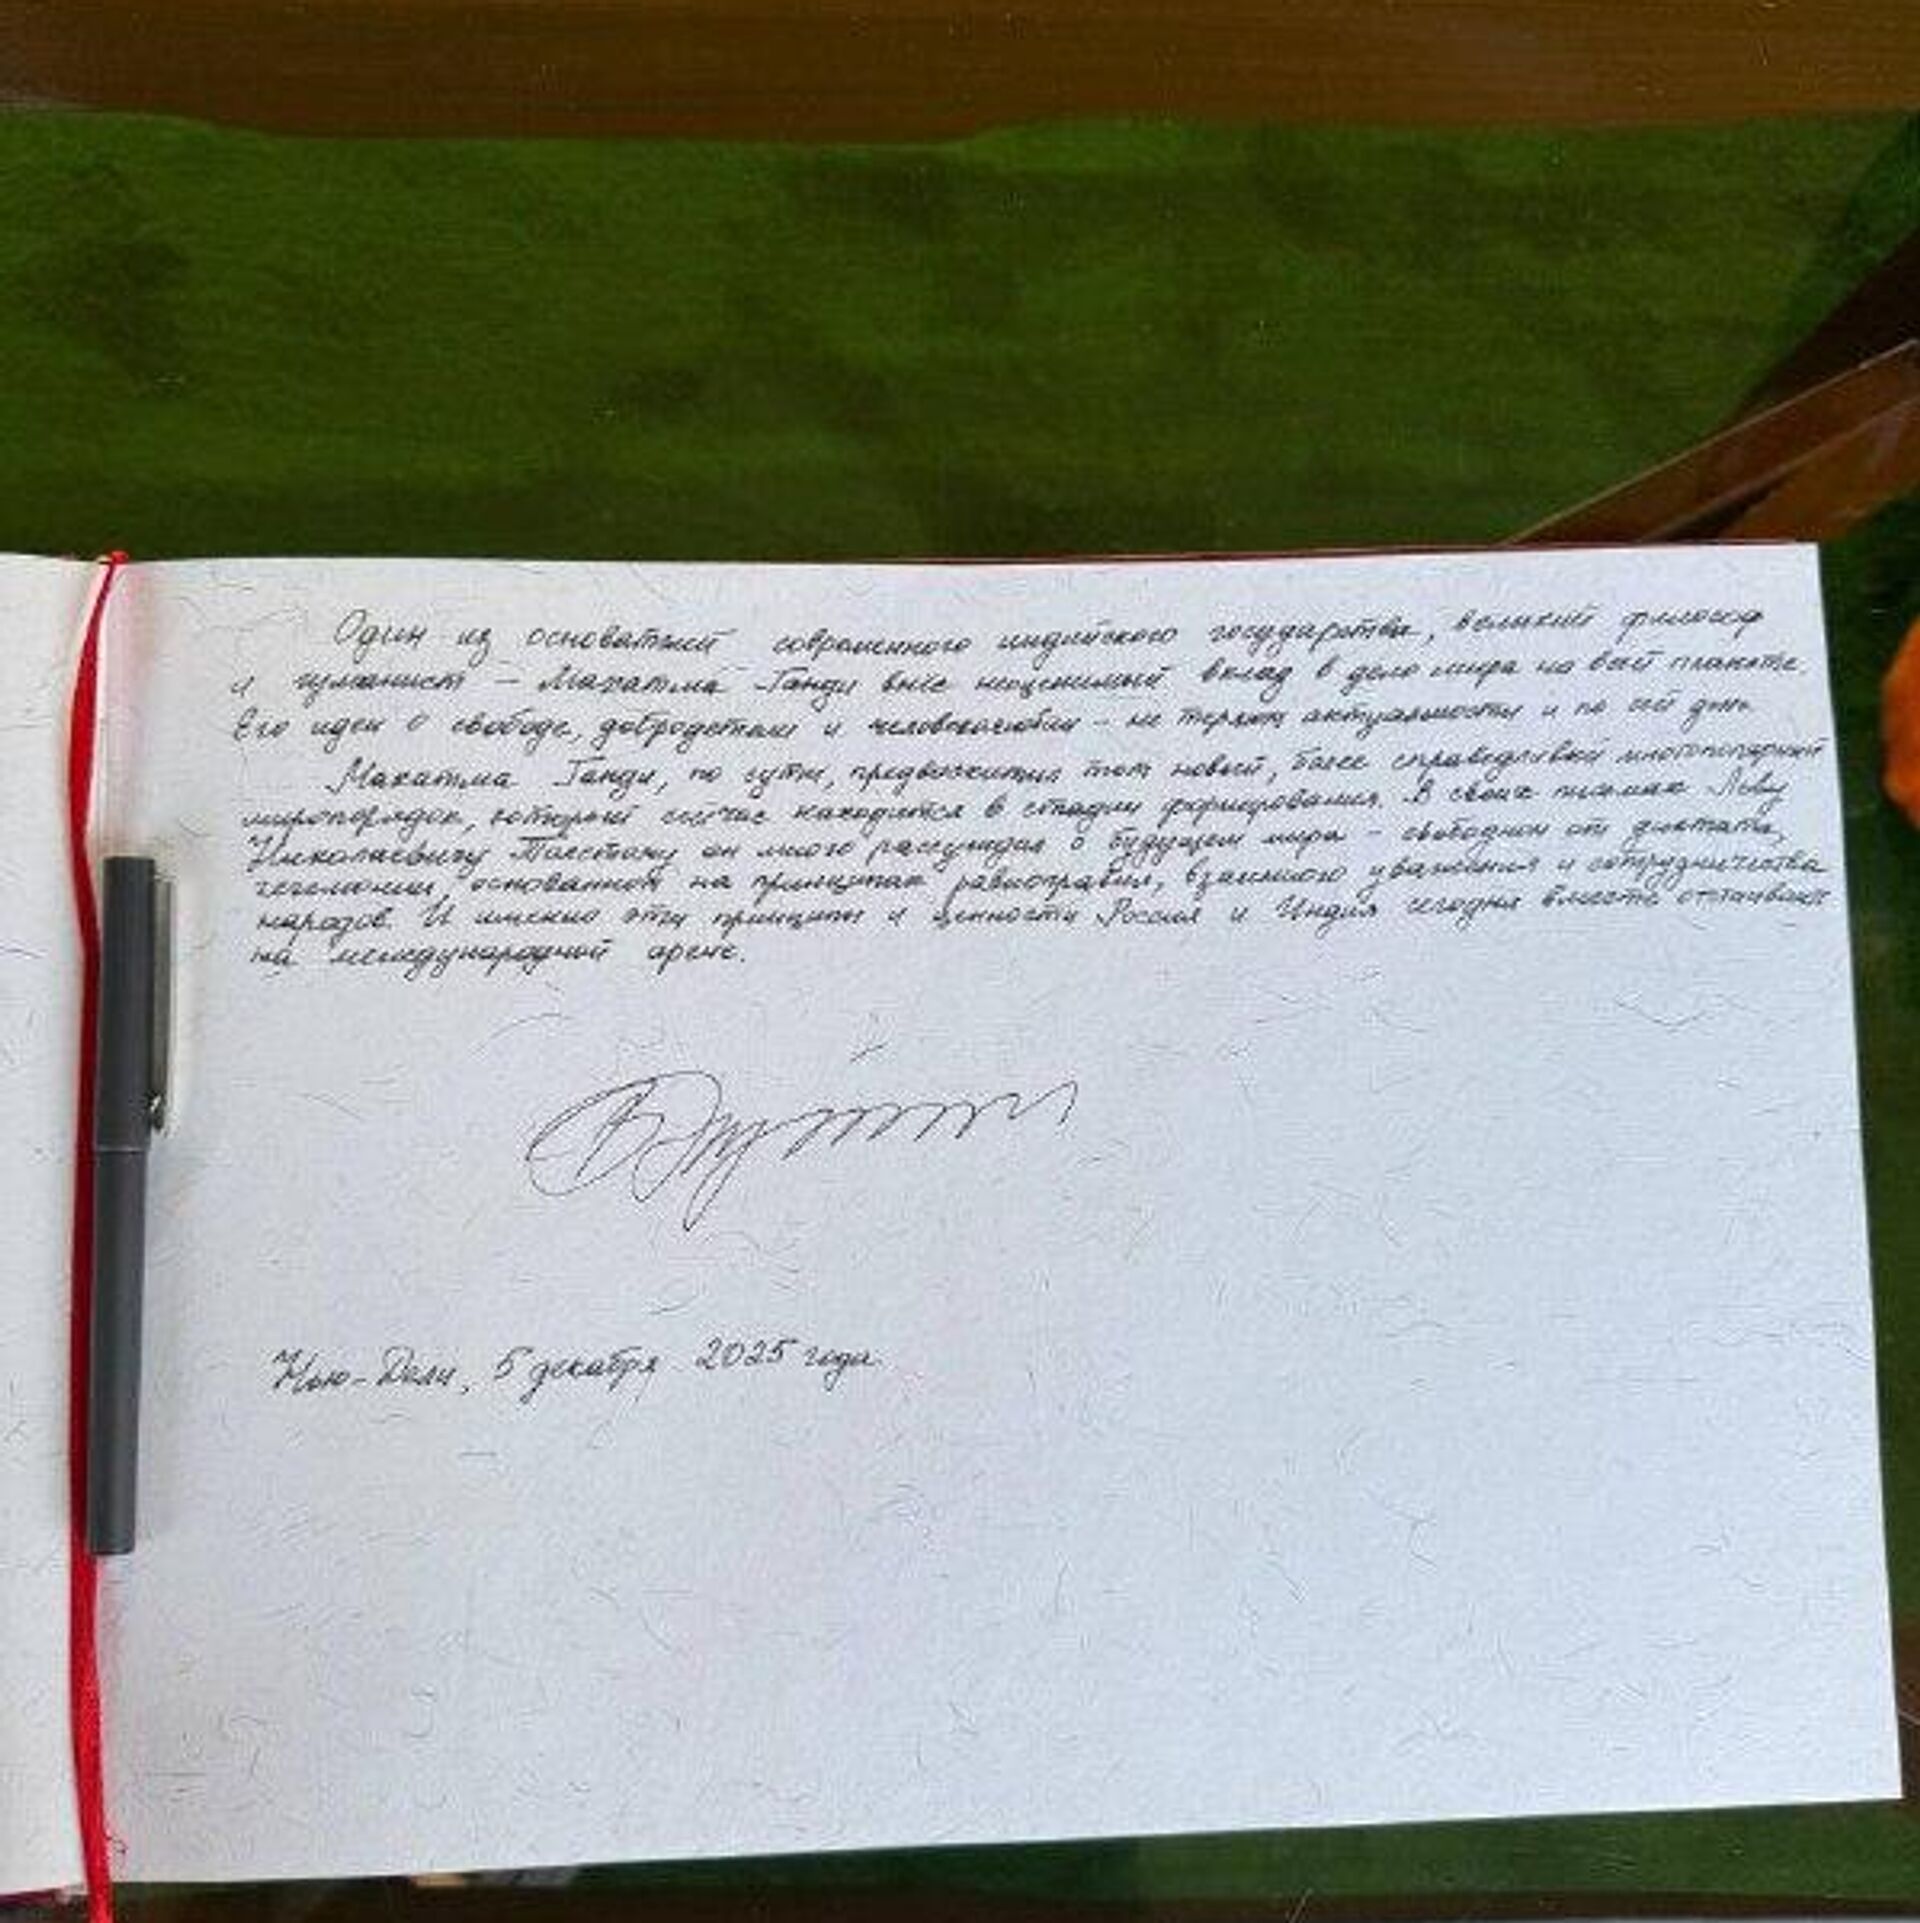 Один из основателей современного индийского государства, великий философ
и гуманист – Махатма Ганди внёс неоценимый вклад в дело мира на всей планете.
Его идеи о свободе, добродетели и человеколюбии – не теряют актуальности и по сей день.
Махатма Ганди, по сути, предвосхитил тот новый, более справедливый многополярный
миропорядок, который сейчас находится в стадии формирования. В своих письмах Льву
Николаевичу Толстому он много рассуждал о будущем мира – свободном от диктата,
гегемонии, основанном на принципах равноправия, взаимного уважения и сотрудничества
народов. И именно эти принципы и ценности Россия и Индия сегодня вместе отстаивают
на международной арене.
Нью-Дели, 5 декабря 2025 года.